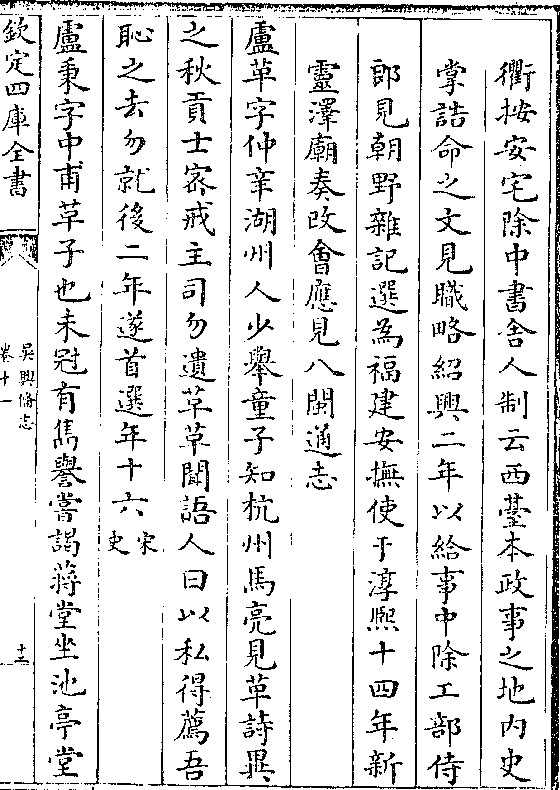 衢按安宅除中書舍人制云西臺本政事之地内史
掌誥命之文見職略紹興二年以給事中除工部侍
郎見朝野雜記選為福建安撫使于淳熙十四年新
靈澤廟奏改會應見八閩通志
盧革字仲辛湖州人少舉童子知杭州馬亮見革詩異
之秋貢士密戒主司勿遺革革聞語人曰以私得薦吾
恥之去勿就後二年遂首選年十六宋史
盧秉字中甫革子也未冠有雋譽嘗謁蔣堂坐池亭堂
欽定四庫全書
吳興備志
卷十一
十二